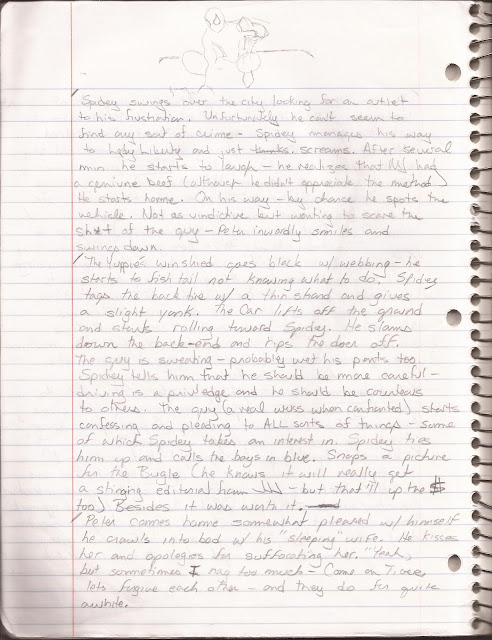 Spidey swings over the city looking for an outlet
to his frustration. Unfortunately he can't seem to
find any sort of crime - Spidey manages his way
to Lady Liberty and just thinks. screams. After several
min. he starts to laugh - he realizes that MJ had
a genuine beef (although he didn't appreciate the method)
He starts home. On his way - by chance he spots the
vehicle. Not as vindictive but wanting to scare the
sh*t of the guy - Peter inwardly smiles and
swings down.
The Yuppie's winshied goes black w/ webbing - he
starts to fish tail not knowing what to do. Spidey
tags the back tire w/ a thin strand and gives
a slight yank. The Car lifts off the ground
and starts rolling toward Spidey. He slams
down the back-end and rips the door off.
The guy is sweating - probably wet his pants too.
Spidey tells him that he should be more careful -
driving is a priviledge and he should be courteous
to others. The guy (a real wuss when confronted) starts
confessing and pleading to ALL sorts of things - some
of which Spidey takes an interest in. Spidey ties
him up and calls the boys in blue. Snaps a picture
for the Bugle (he knows it will really get
a stinging editorial from JJJ - but that'll up the $
too) Besides it was worth it.
Peter comes home somewhat pleased w/ himself
he crawls into bed w/ his "sleeping" wife. He kisses
her and apologies for suffocating her. "Yeah,
but sometimes I nag too much - Come on Tiger
lets forgive each other - and they do for quite
awhile.